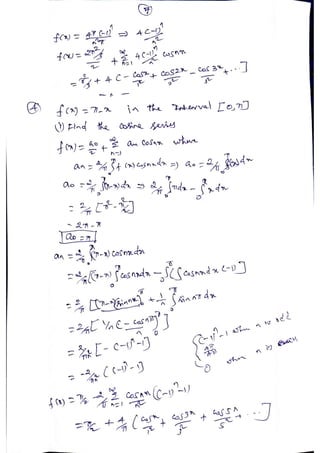 f(x) = 4π(-1)ⁿ / n²π ⇒ 4(-1)ⁿ / n²
f(x) = + Σ 4(-1)ⁿ / n² cosnx
+ 4 [ - cosx + cos2x - cos3x + ... ]
④ f(x) = π-x in the interval [0,π]
(1) Find the cosine series
f(x) = a₀/2 + Σ an cosnx where
an = 2/π ∫ f(x) cosnx dx ⇒ a₀ = 2/π ∫ f(x) dx
a₀ = 2/π ∫ (π-x) dx ⇒ 2/π ∫ π dx - ∫ x dx
= 2/π [π² - π²/2]
= 2π - π
a₀ = π
an = 2/π ∫ (π-x) cosnx dx
= 2/π (π-x) ∫ cosnx dx - ∫ (∫ cosnx dx (-1)]
= 2/π [ [(π-x) sinnx] + 1/n ∫ sin nx dx
= 2/π [ 1/n (- cosnx/n) ]
= 2/πn² [ - (-1)ⁿ - 1) ]
= -2/πn² ( (-1)ⁿ - 1)
(-1)ⁿ - 1 when n is odd
0 when n is even
f(x) = π/2 - 2/π Σ cosnx/n² ((-1)ⁿ - 1)
= π/2 + 4/π ( cosx/1² + cos3x/3² + cos5x/5² + ... ]